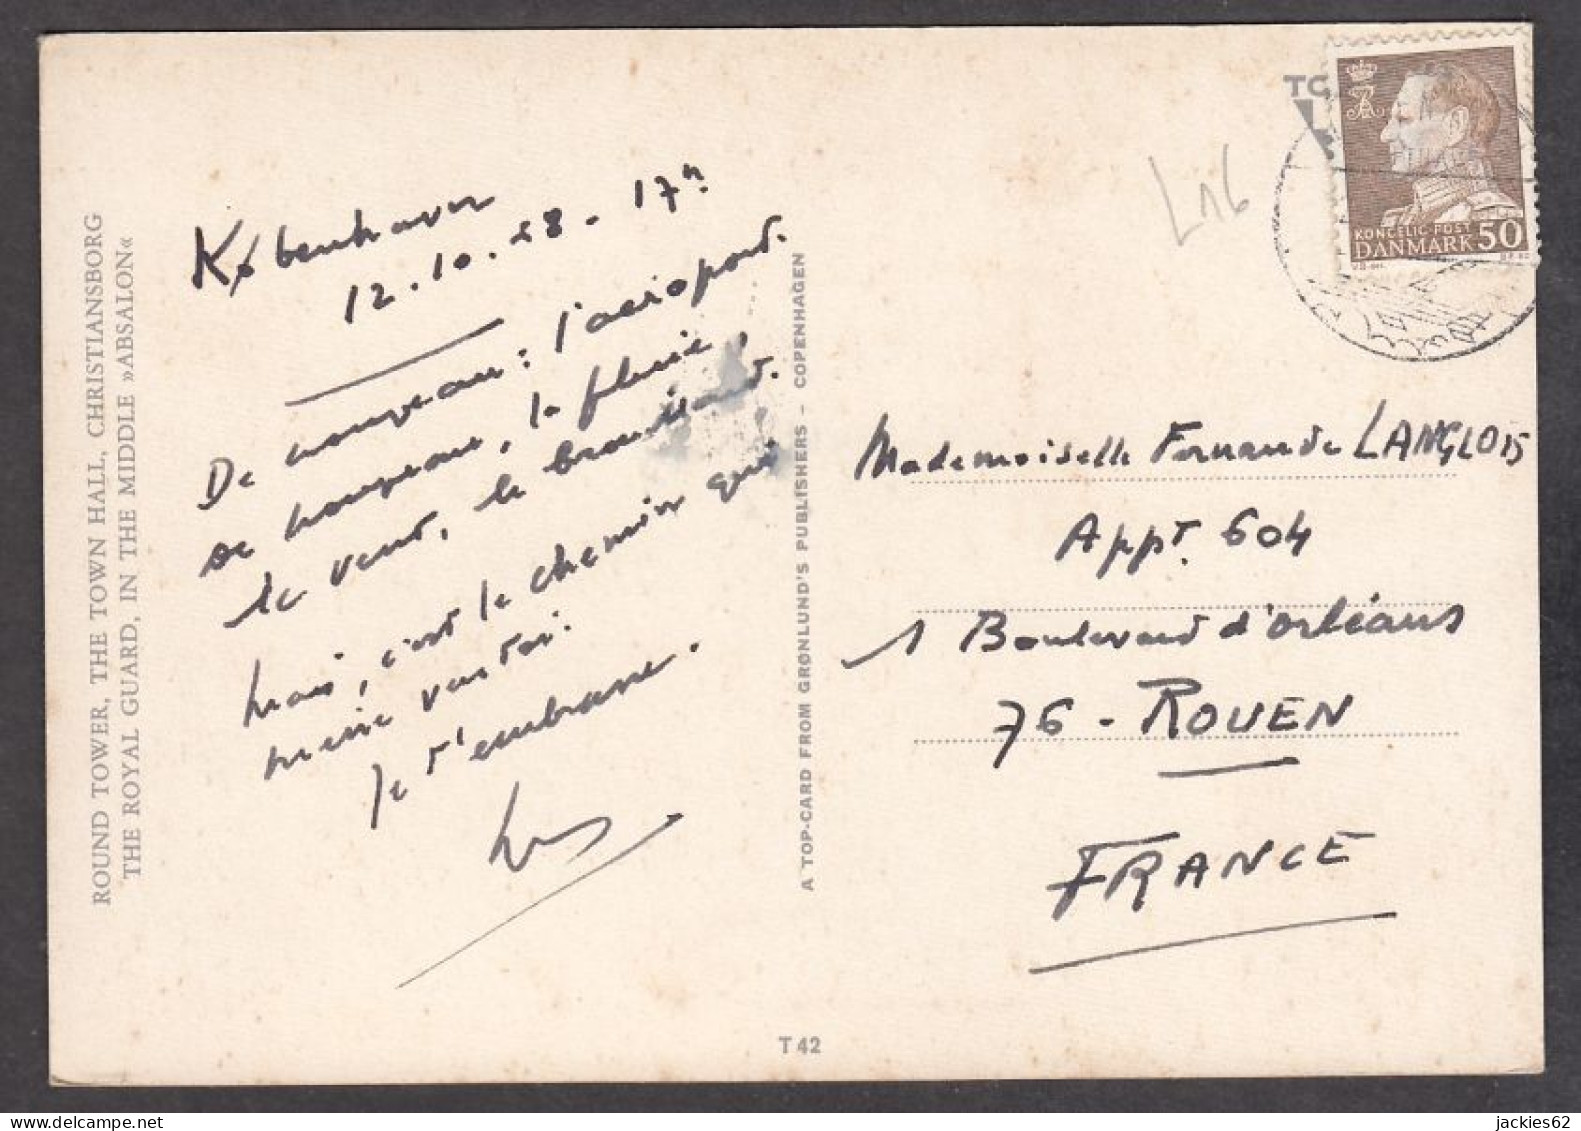 ROUND TOWER, THE TOWN HALL, CHRISTIANSBORG
THE ROYAL GUARD, IN THE MIDDLE »ABSALON«
København
12.10. - 17h
De nouveau : l'aéroport.
De nouveau, la pluie,
le vent, le brouillard.
Mais, c'est le chemin qui
mène vers toi.
Je t'embrasse.
A TOP-CARD FROM GRØNLUND'S PUBLISHERS - COPENHAGEN
T 42
L16
KONGELIG POST
DANMARK 50
Mademoiselle Fernande LANGLOIS
Appt. 604
1 Boulevard d'Orléans
76 - ROUEN
FRANCE
jackies62